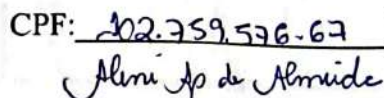 CPF: 102.759.576-67
Aleni Ap de Almeida